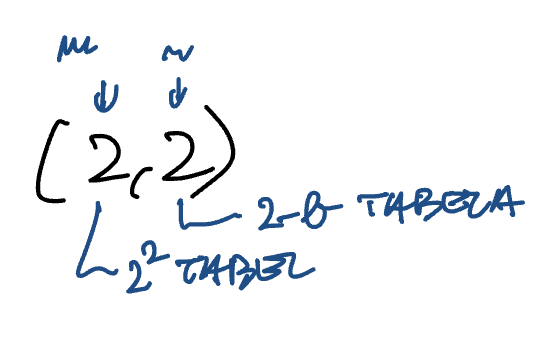 m n
(2,2)
2-B TABELA
2² TABEL